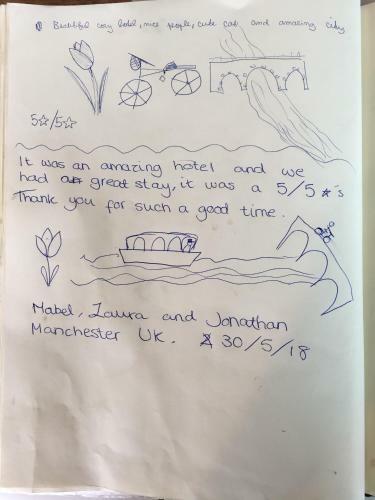 Beautiful cosy hotel, nice people, cute cat and amazing city
5☆/5☆
It was an amazing hotel and we
had a great stay, it was a 5/5 ☆'s
Thank you for such a good time.
Mabel, Laura and Jonathan
Manchester UK. 30/5/18